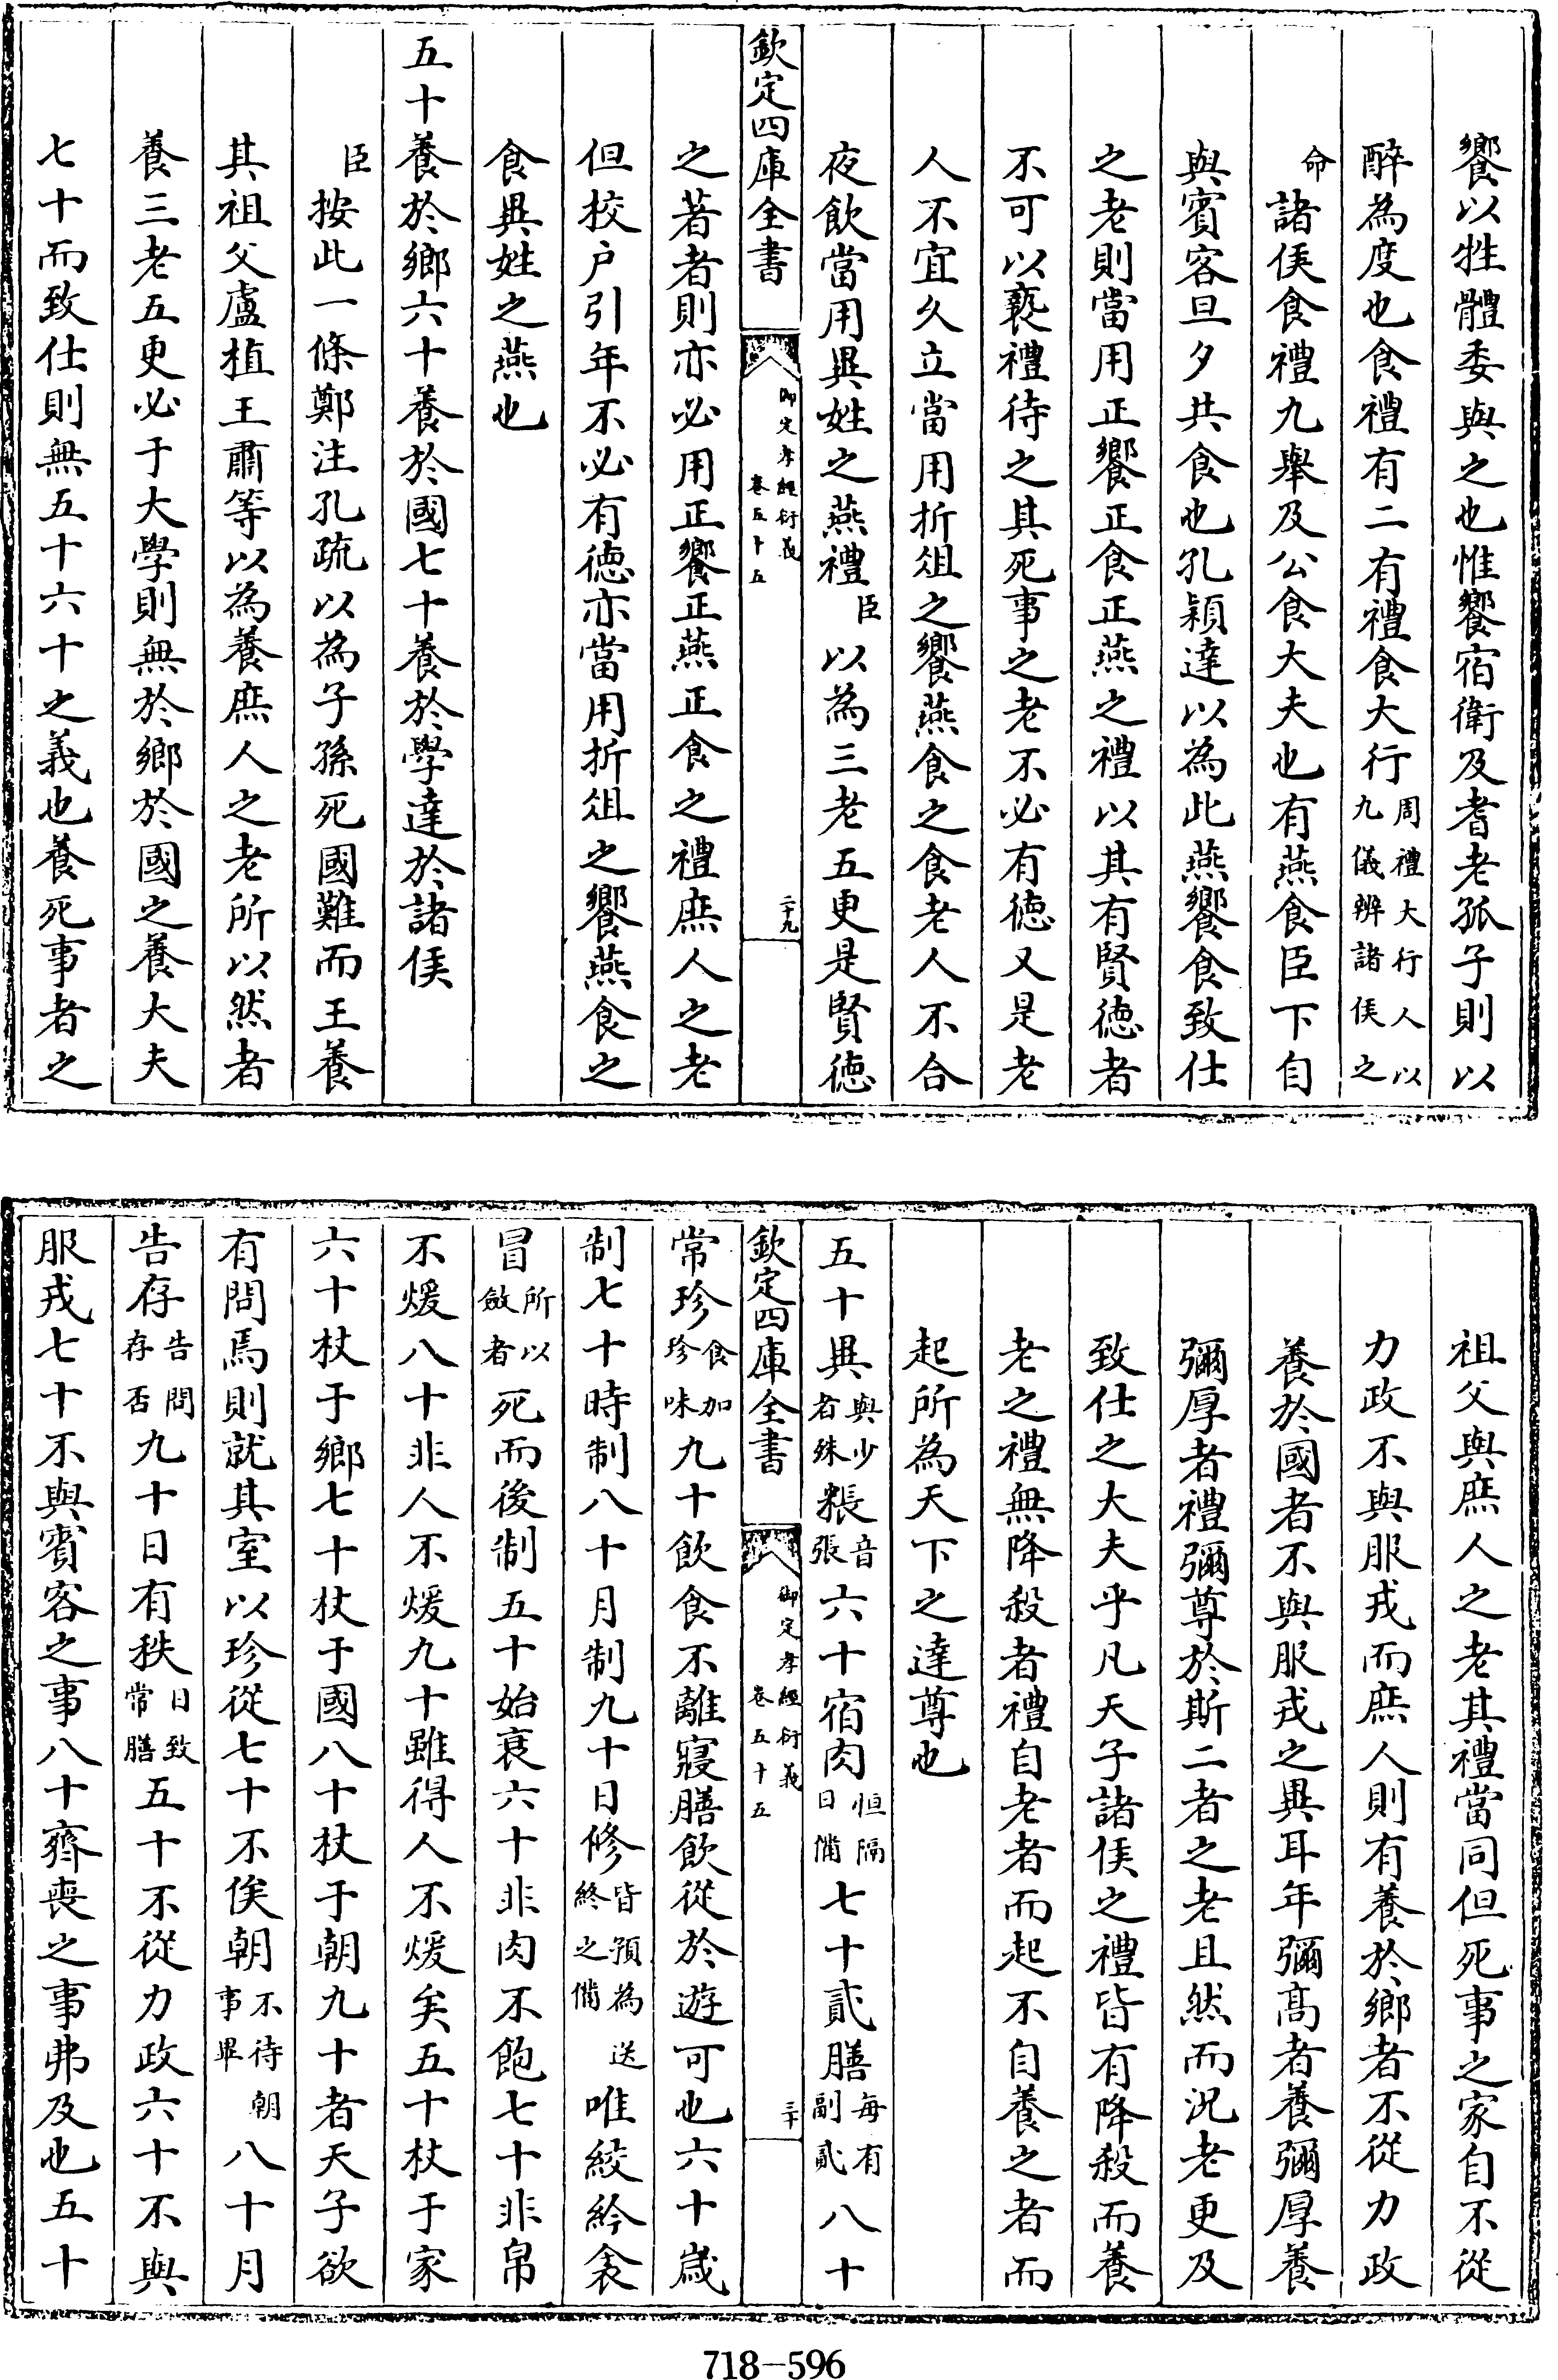 饗以牲體委與之也惟饗宿衛及耆老孤子則以
醉為度也食禮有二有禮食大行周禮大行人以九儀辨諸侯之
命諸侯食禮九舉及公食大夫也有燕食臣下自
與賓客旦夕共食也孔穎達以為此燕饗食致仕
之老則當用正饗正食正燕之禮以其有賢徳者
不可以褻禮待之其死事之老不必有徳又是老
人不宜久立當用折俎之饗燕食之食老人不合
夜飲當用異姓之燕禮臣以為三老五更是賢徳
欽定四庫全書 御定孝經衍義 卷五十五 二十九
之著者則亦必用正饗正燕正食之禮庶人之老
但校户引年不必有徳亦當用折俎之饗燕食之
食異姓之燕也
五十養於鄉六十養於國七十養於學達於諸侯
臣按此一條鄭注孔疏以為子孫死國難而王養
其祖父盧植王肅等以為養庶人之老所以然者
養三老五更必于大學則無於鄉於國之養大夫
七十而致仕則無五十六十之義也養死事者之
祖父與庶人之老其禮當同但死事之家自不從
力政不與服戎而庶人則有養於鄉者不從力政
養於國者不與服戎之異耳年彌髙者養彌厚養
彌厚者禮彌尊於斯二者之老且然而况老更及
致仕之大夫乎凡天子諸侯之禮皆有降殺而養
老之禮無降殺者禮自老者而起不自養之者而
起所為天下之達尊也
五十異與少者殊粻音張六十宿肉恒隔日備七十貳膳每有副貳八十
欽定四庫全書 御定孝經衍義 卷五十五 三十
常珍食加珍味九十飲食不離寢膳飲從於遊可也六十歳
制七十時制八十月制九十日修皆預為送終之備唯絞紟衾
冒所以斂者死而後制五十始衰六十非肉不飽七十非帛
不煖八十非人不煖九十雖得人不煖矣五十杖于家
六十杖于鄉七十杖于國八十杖于朝九十者天子欲
有問焉則就其室以珍從七十不俟朝不待朝事畢八十月
告存告問存否九十日有秩日致常膳五十不從力政六十不與
服戎七十不與賓客之事八十齊喪之事弗及也五十
718-596